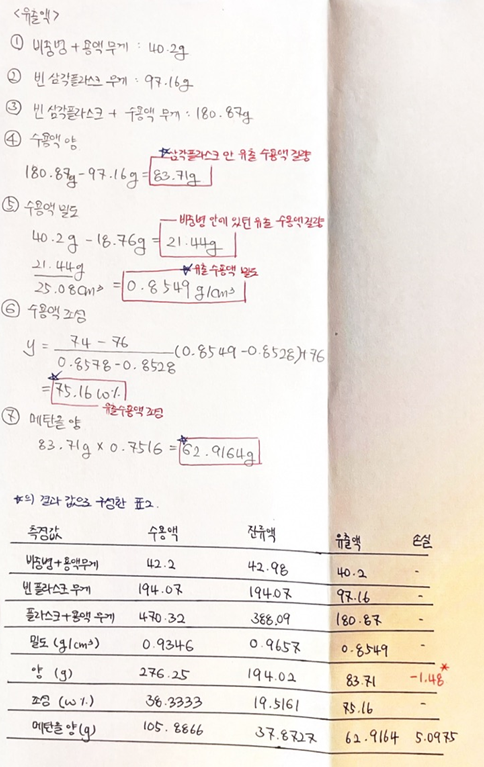 <유출액>
① 비중병 + 용액 무게 : 40.2g
② 빈 삼각플라스크 무게 : 97.16g
③ 빈 삼각플라스크 + 수용액 무게 : 180.87g
④ 수용액 양
★삼각플라스크 안 유출 수용액 질량
180.87g - 97.16g = 83.71g
⑤ 수용액 밀도
비중병 안에 있던 유출 수용액 질량
40.2g - 18.76g = 21.44g
★유출 수용액 밀도
21.44g / 25.08cm³ = 0.8549 g/cm³
⑥ 수용액 조성
y = (74 - 76) / (0.8578 - 0.8528) (0.8549 - 0.8528) + 76
= 75.16 w%
유출수용액 조성
⑦ 메탄올 양
83.71g × 0.7516 = 62.9164g
★의 결과 값으로 구성한 표2.
측정값 수용액 잔류액 유출액 손실
비중병+용액무게 42.2 42.98 40.2 -
빈 플라스크 무게 194.07 194.07 97.16 -
플라스크+용액 무게 470.32 388.09 180.87 -
밀도 (g/cm³) 0.9346 0.9657 0.8549 -
양 (g) 276.25 194.02 83.71 -1.48*
조성 (w%) 38.3333 19.5161 75.16 -
메탄올 양(g) 105.8866 37.8727 62.9164 5.0975